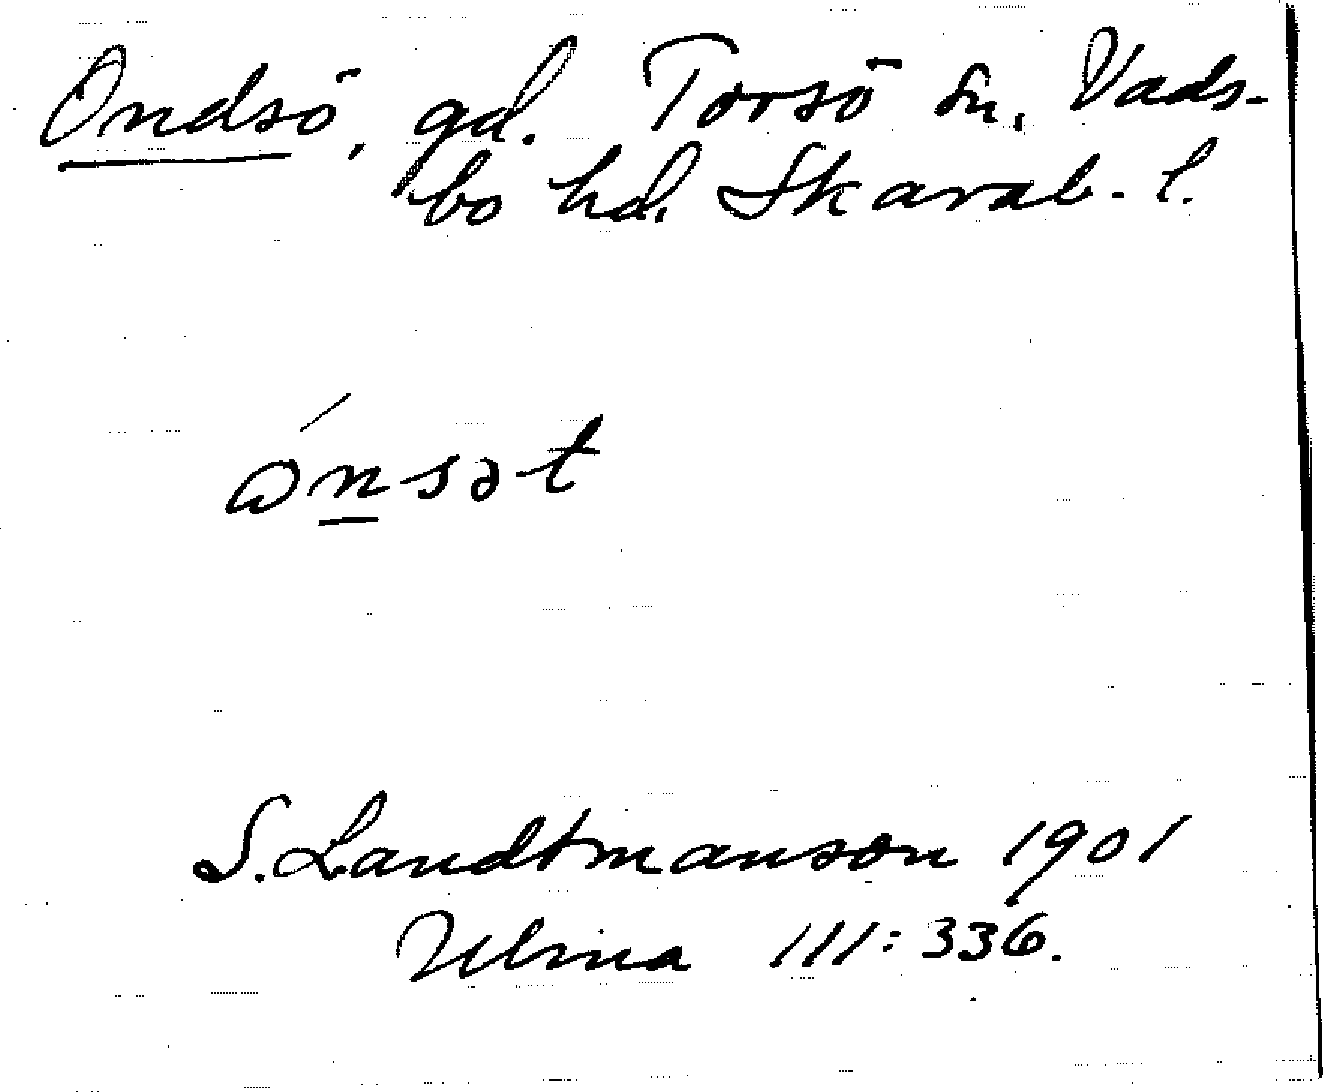 Ondsö, gd. Torsö sn, Vads-
bo hd. Skarab. l.
ónsət
S. Landtmanson 1901
Ulma 111: 336.